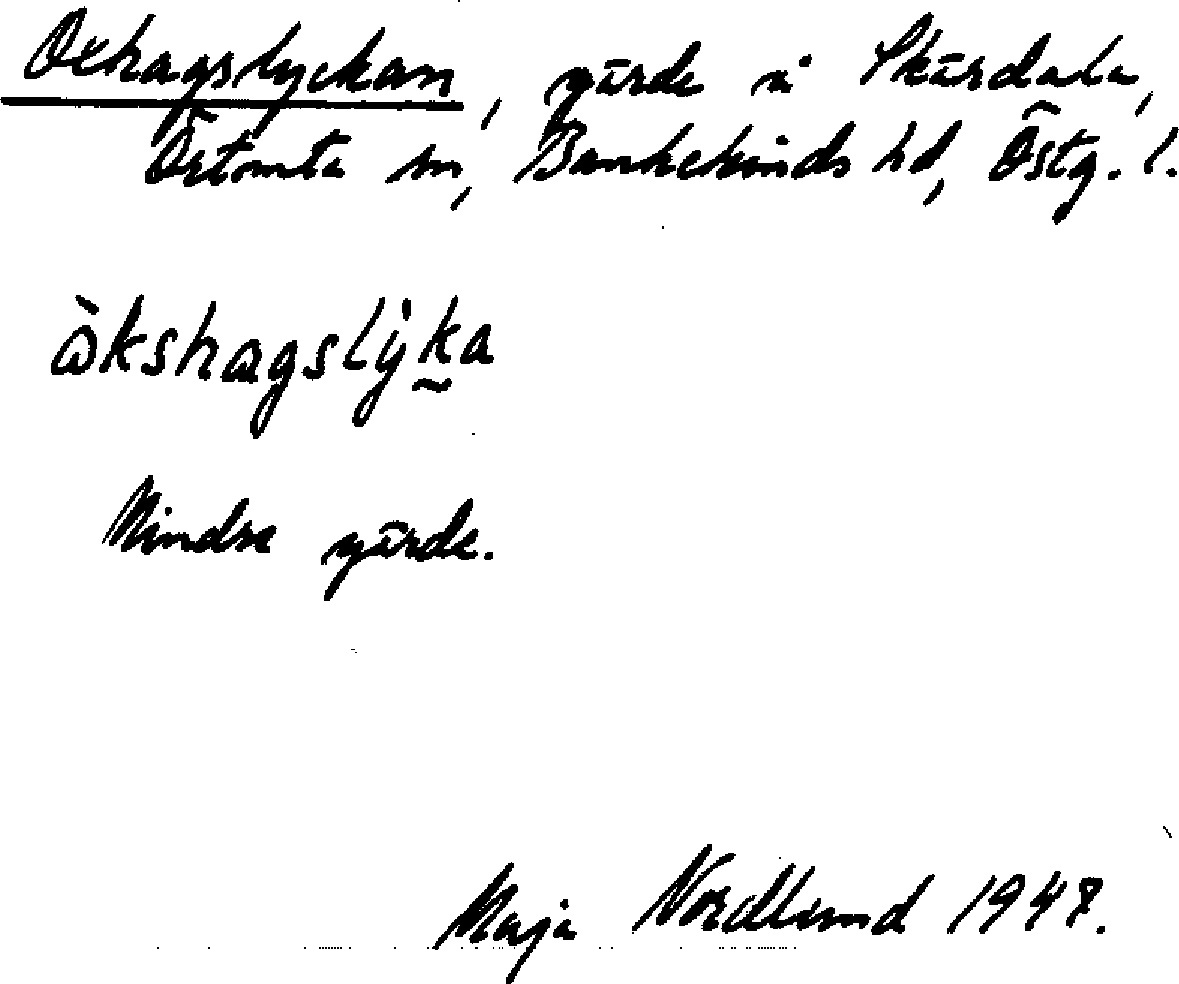 Oxhagslyckan, gärde i Skärdala,
Örtomta sn, Bankekinds hd, Östg. l.
ὼkshagslỳka
Mindre gärde.
Maja Nordlund 1947.